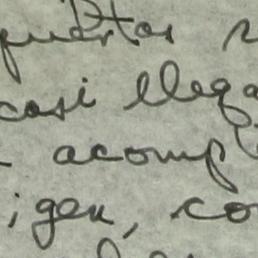 puertas
casi llega
acomp
igen, co